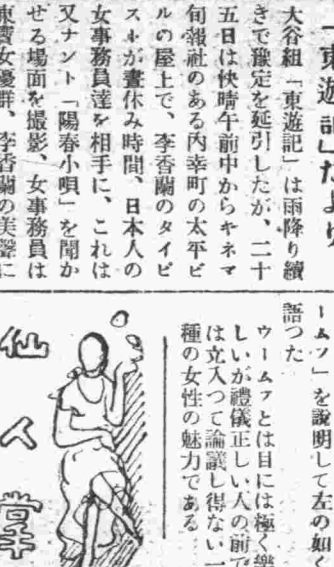 「東遊記」だより
大谷組「東遊記」は雨降り續
きで豫定を延引したが、二十
五日は快晴午前中からキネマ
旬報社のある内幸町の太平ビ
ルの屋上で、李香蘭のタイピ
ストが晝休み時間、日本人の
女事務員達を相手に、これは
又ナント「陽春小唄」を聞か
せる場面を撮影、女事務員は
東寶女優群、李香蘭の美聲に
ームフ」を說明して左の如く
語つた
ウームフとは目には極く樂
しいが禮儀正しい人の前で
は立入つて論議し得ない一
種の女性の魅力である
仙人掌